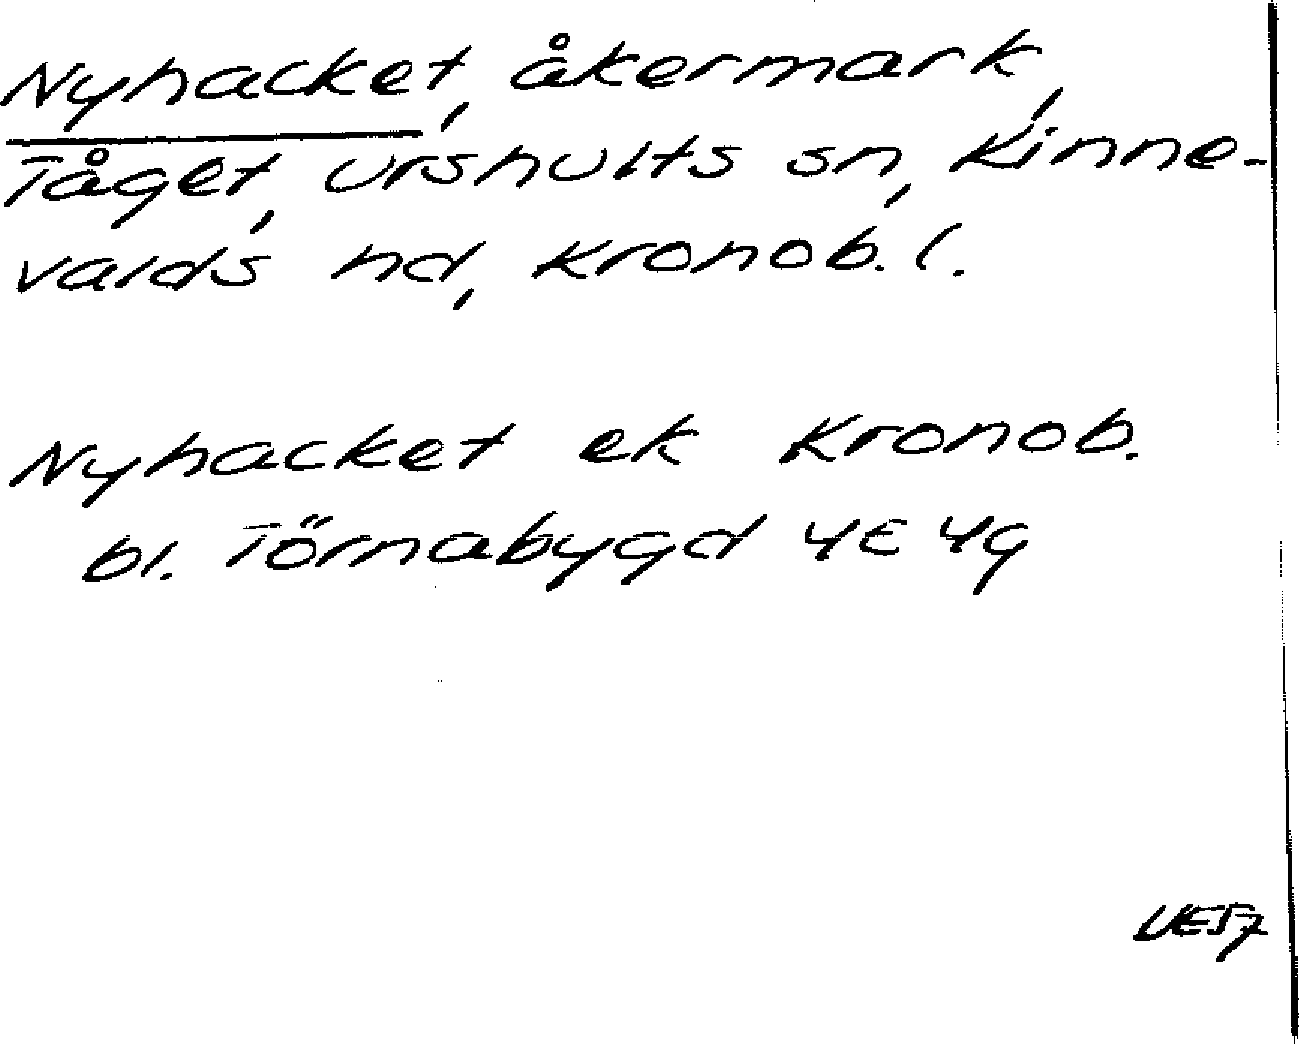 Nyhacket, åkermark,
Tåget, Urshults sn, Kinne-
valds hd, Kronob. l.
Nyhacket ek Kronob.
bl. Törnabygd 4E 4g
UE57